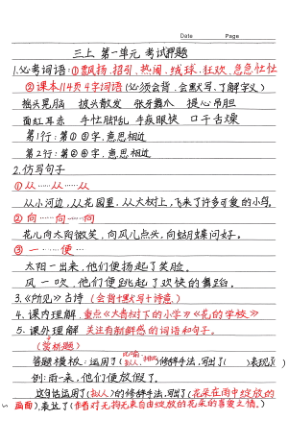 Date Page
三上 第一单元 考试押题
1.必考词语:①飘扬、招引、热闹、绒球、狂欢、急急忙忙
②课本114页4字词语(必须会背,会默写,了解字义)
摇头晃脑 披头散发 张牙舞爪 提心吊胆
面红耳赤 手忙脚乱 手疾眼快 口干舌燥
第1行:第①③字,意思相近
第2行:第②④字,意思相近
2.仿写句子
①从……从……从
从小河边,从花园里,从大树上,飞来了许多可爱的小鸟。
②向……向……向
花儿向太阳微笑,向风儿点头,向蝴蝶问好。
③一……便…
太阳一出来,他们便扬起了笑脸。
风一吹,他们便跳起了欢快的舞蹈。
3.《所见》古诗(会背+默写+诗意)
4.课内理解 重点《大青树下的小学》《花的学校》
5.课外理解 关注有新鲜感的词语和句子。
(赏析题)
答题模板:运用了( )修辞手法,写出了( )表现了( )
例:雨一来,他们便放假了。
这句话运用了(拟人)的修辞手法,写出了(花朵在雨中绽放的
画面),表达了(作者对无拘无束自由绽放的花朵的喜爱之情。)